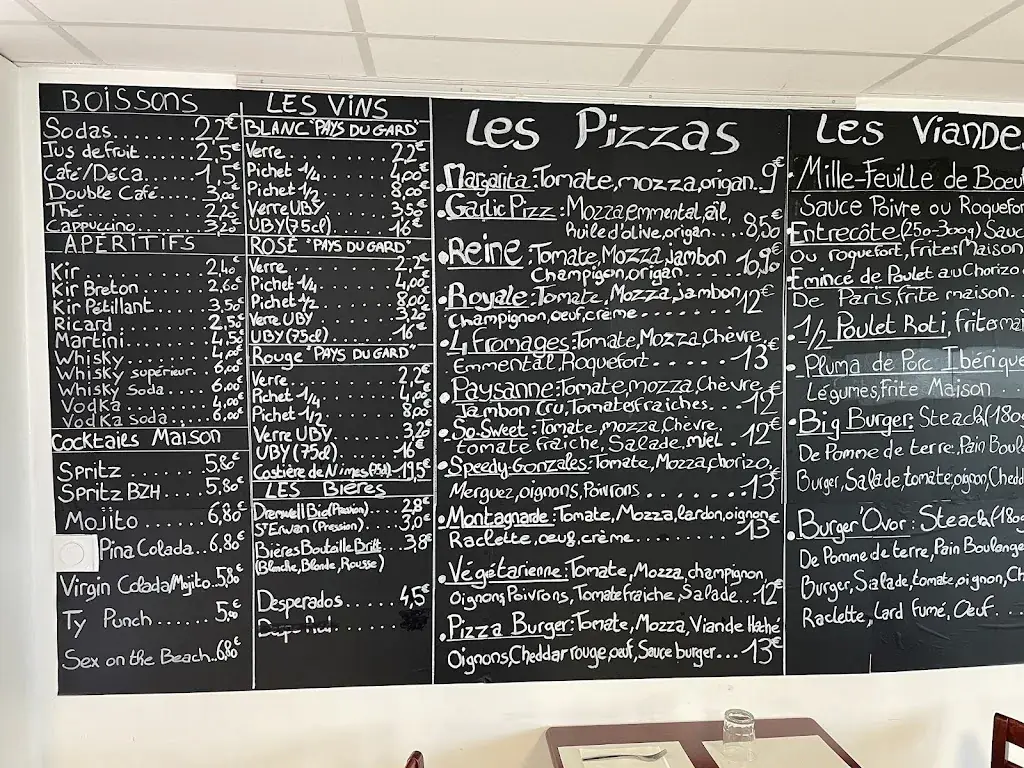 BOISSONS
Sodas....... 2,2€
Jus de fruit...... 2,5€
Café/Déca..... 1,5€
Double Café.... 3,00€
Thé ........ 2,20€
Cappuccino..... 3,20€
APÉRITIFS
Kir ........ 2,40€
Kir Breton ..... 2,60€
Kir Pétillant .... 3,50€
Ricard ....... 2,50€
Martini....... 4,50€
Whisky ....... 4,00€
Whisky supérieur.. 6,00€
Whisky Soda .... 6,00€
Vodka ....... 4,00€
Vodka Soda..... 6,00€
Cocktaies Maison
Spritz ...... 5,80€
Spritz BZH .... 5,80€
Mojito ...... 6,80€
Pina Colada.. 6,80€
Virgin Colada/Mojito.. 5,80€
Ty Punch..... 5,00€
Sex on the Beach.. 6,80€
LES VINS
BLANC "PAYS DU GARD"
Verre....... 2,2€
Pichet 1/4 .... 4,00€
Pichet 1/2 .... 8,00€
Verre UBY .... 3,50€
UBY (75cl).... 16€
ROSÉ "PAYS DU GARD"
Verre ...... 2,2€
Pichet 1/4 .... 4,00€
Pichet 1/2 .... 8,00€
Verre UBY .... 3,20€
UBY (75cl).... 16€
Rouge "PAYS DU GARD"
Verre ...... 2,2€
Pichet 1/4 .... 4,00€
Pichet 1/2 .... 8,00€
Verre UBY.... 3,2€
UBY (75cl).... 16€
Costière de Nîmes (75cl).. 19,5€
LES Bières
(Pression)... 2,8€
St Erwan (Pression).... 3,0€
Bières Bouteille Britt ... 3,8€
(Blanche, Blonde, Rousse)
Desperados...... 4,5€
Les Pizzas
Margarita: Tomate, mozza, origan. 9€
Garlic Pizz: Mozza, emmental, ail,
huile d'olive, origan... 8,50€
Reine: Tomate, Mozza, jambon
Champignon, origan..... 10,90€
Royale: Tomate, Mozza, jambon, 12€
Champignon, oeuf, crème.......
4 Fromages: Tomate, Mozza, Chèvre,
Emmental, Roquefort....... 13€
Paysanne: Tomate, mozza, Chèvre,
Jambon Cru, Tomates fraiches... 12€
So-Sweet: Tomate, mozza, Chèvre,
tomate fraiche, Salade, miel.. 12€
Speedy-Gonzales: Tomate, Mozza, chorizo,
Merguez, oignons, Poivrons....... 13€
Montagnarde: Tomate, Mozza, lardon, oignons
Raclette, oeuf, crème........ 13€
Végétarienne: Tomate, Mozza, champignon,
Oignons, Poivrons, Tomate fraiche, Salade... 12€
Pizza Burger: Tomate, Mozza, Viande Haché
Oignons, Cheddar rouge, oeuf, Sauce burger... 13€
Les Viande
Mille-Feuille de Boeu
Sauce Poivre ou Roquefor
Entrecôte (250-300g) Sauc
Ou roquefort, Frites Maison
Emincé de Poulet au Chorizo
De Paris, frite maison..
1/2 Poulet Roti, Frite mai
Pluma de Porc Ibérique
Légumes, Frite Maison
Big Burger: Steack (180g
De Pomme de terre, Pain Boula
Burger, Salade, tomate, oignon, Chedd
Burger'Ovor: Steack (180
De Pomme de terre, Pain Boulange
Burger, Salade, tomate, oignon, Ch
Raclette, Lard Fumé, Oeuf..